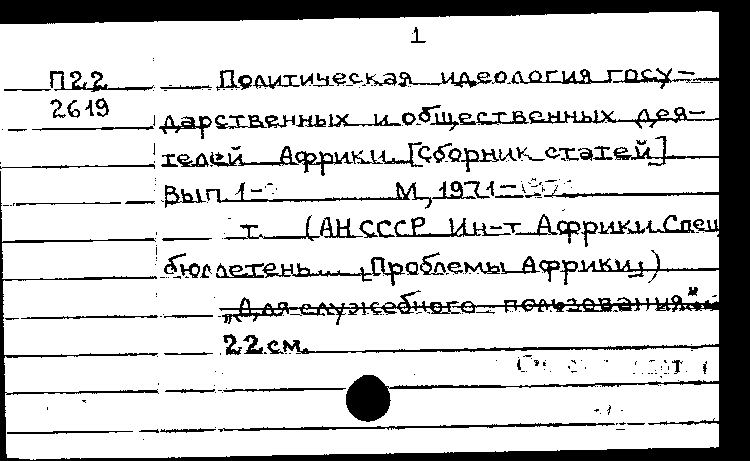 1
П22 Политическая идеология госу-
2619 дарственных и общественных дея-
телей Африки. [Сборник статей]
Вып. 1- М., 1971-
т. (АН СССР Ин-т Африки. Спец
бюллетень... „Проблемы Африки")
„Для служебного пользования"
22 см.